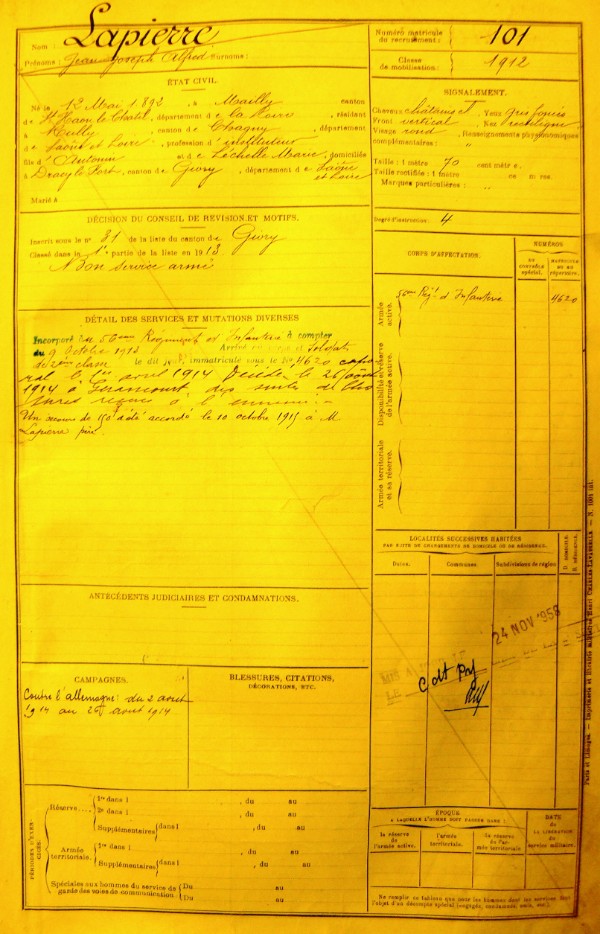 Nom : Lapierre
Prénoms : Jean Joseph Alfred Surnoms :
Numéro matricule
du recrutement : 101
Classe
de mobilisation : 1912
ÉTAT CIVIL.
Né le 12 Mai 1892, à Mailly canton
de St Haon le Chatel, département de la Loire, résidant
à Rully, canton de Chagny, département
de Saône et Loire, profession d'instituteur
fils d'Antonin et de Léchelle Marie, domiciliés
à Dracy le Fort, canton de Givry, département de Saône
et Loire
Marié à
SIGNALEMENT.
Cheveux châtains Yeux gris foncés
Front vertical, Nez rectiligne
Visage rond, Renseignements physionomiques
complémentaires : "
Taille : 1 mètre 70 centimètres.
Taille rectifiée : 1 mètre
Marques particulières : "
Degré d'instruction : 4
DÉCISION DU CONSEIL DE RÉVISION ET MOTIFS.
Inscrit sous le n° 31 de la liste du canton de Givry
Classé dans la 1e partie de la liste en 1913
Bon service armé
CORPS D'AFFECTATION.
NUMÉROS
au contrôle spécial.
matricule ou au répertoire.
Armée active.
56ème Régt d'Infanterie
4620
Disponibilité et réserve de l'armée active.
Armée territoriale et sa réserve.
DÉTAIL DES SERVICES ET MUTATIONS DIVERSES
Incorporé au 56ème Régiment d'Infanterie à compter
du 9 Octobre 1913 Arrivé au corps et soldat
de 2ème classe le dit jour, immatriculé sous le No 4620 capo-
ral le 1er avril 1914 Décédé le 26 août
1914 à des suites de bles
sures reçues à l'ennemi.-
Un secours de 150f a été accordé le 10 octobre 1915 à M
Lapierre père.
LOCALITÉS SUCCESSIVES HABITÉES
PAR SUITE DE CHANGEMENTS DE DOMICILE OU DE RÉSIDENCE.
Dates.
Communes.
Subdivisions de région
D. DOMICILE.
R. RÉSIDENCE.
24 NOV 1958
ANTÉCÉDENTS JUDICIAIRES ET CONDAMNATIONS.
CAMPAGNES.
Contre l'allemagne : du 2 août
1914 au 26 août 1914
BLESSURES, CITATIONS,
DÉCORATIONS, ETC.
PÉRIODES D'EXERCICES.
Réserve....
1re dans l , du au
2e dans l , du au
Supplémentaires dans l , du au
Armée territoriale.
1re dans l , du au
Supplémentaires , du au
Spéciales aux hommes du service de
garde des voies de communication :
Du au
Du au
ÉPOQUE
À LAQUELLE L'HOMME DOIT PASSER DANS :
la réserve de l'armée active.
l'armée territoriale.
la réserve de l'armée territoriale
DATE
de
LA LIBÉRATION
du
service militaire.
Ne remplir ce tableau que pour les hommes dont les services font
l'objet d'un décompte spécial (engagés, condamnés, omis, etc.).
Paris et Limoges. — Imprimerie et librairie militaires Henri CHARLES-LAVAUZELLE. — N. 1001 bis.